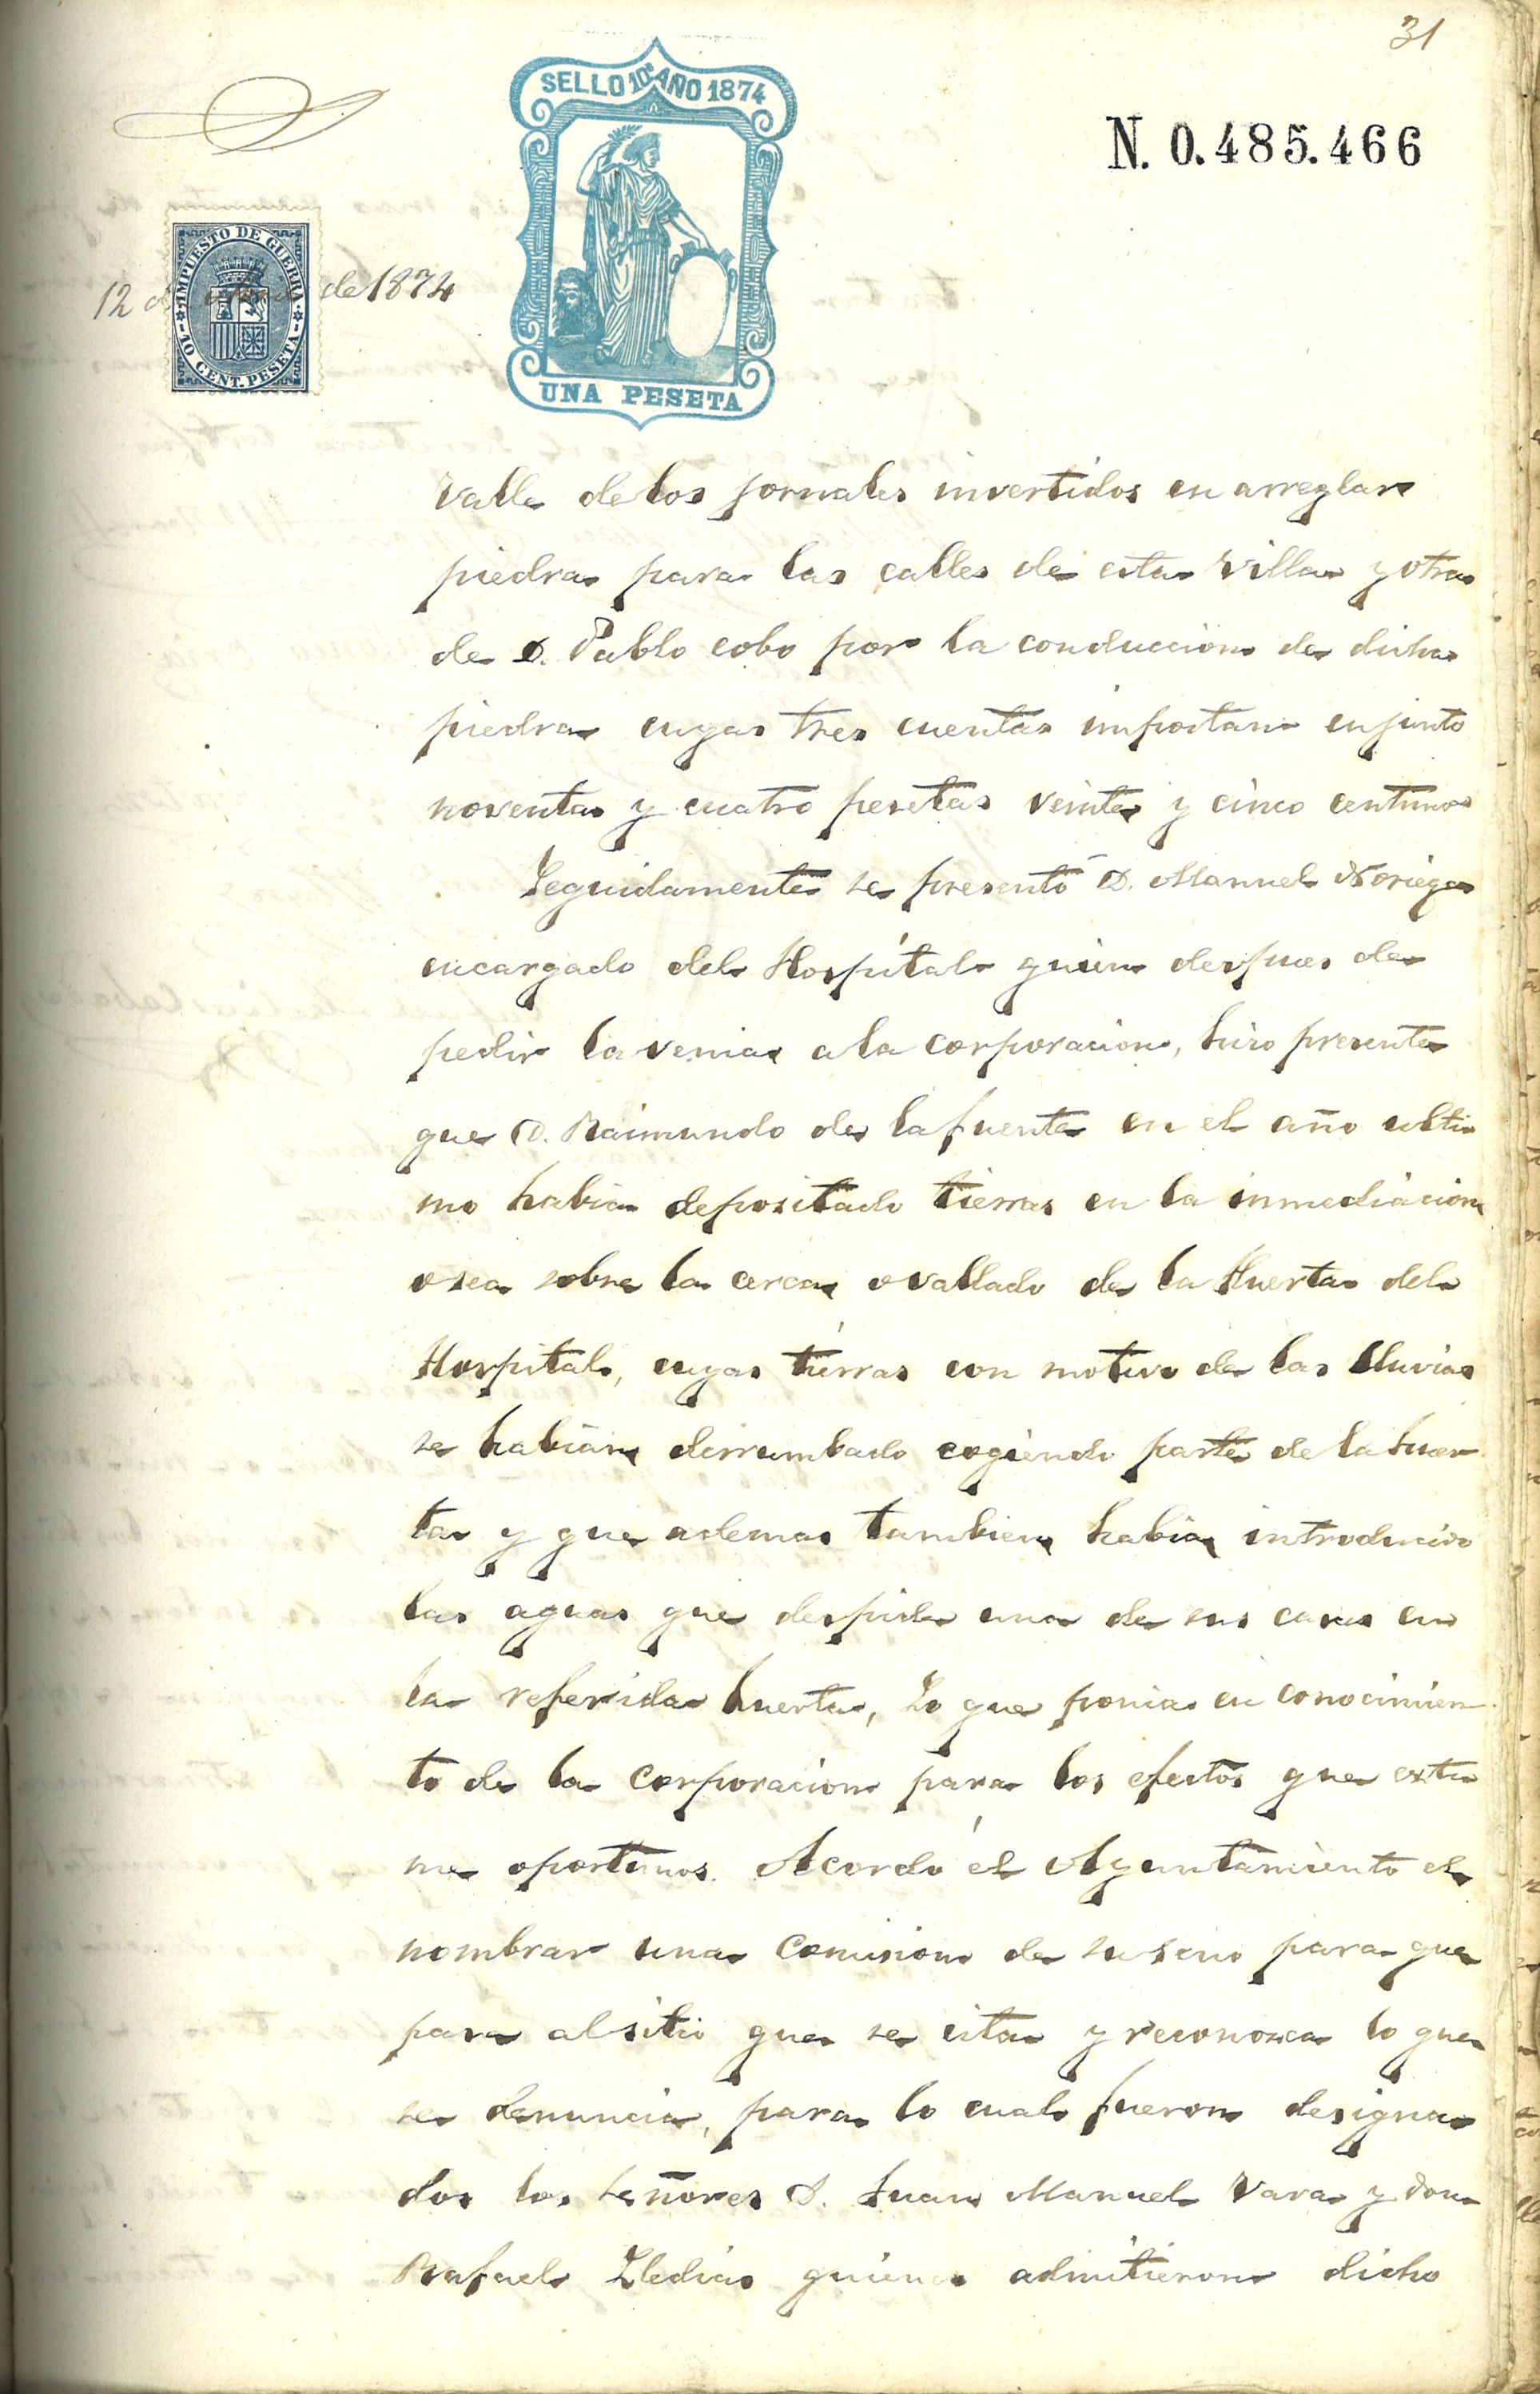 31
SELLO 10º AÑO 1874
N. 0.485.466
IMPUESTO DE GUERRA
10 CENT. PESETA
12 de de 1874
UNA PESETA
Valle de los jornales invertidos en arreglar
piedra para las calles de esta villa y otra
de D. Pablo Cobo por la conduccion de dicha
piedra cuyas tres cuentas importan en junto
noventa y cuatro pesetas veinte y cinco centimos
Seguidamente se presentó D. Manuel Noriega
encargado del Hospital quien despues de
pedir la venia a la corporacion, hizo presente
que D. Raimundo de la fuente en el año ulti
mo habia depositado tierras en la inmediacion
o sea sobre la cerca o vallado de la Huerta del
Hospital, cuyas tierras con motivo de las lluvias
se habian derrumbado cogiendo parte de la huer
ta y que ademas tambien habia introducido
las aguas que despide una de sus casas en
la referida huerta, Lo que ponia en conocimien
to de la corporacion para los efectos que exti
me oportunos. Acordó el Ayuntamiento el
nombrar una Comision de su seno para que
pase al sitio que se cita y reconozca lo que
se denuncia, para lo cual fueron designa
dos los señores D. Juan Manuel Vara y don
Rafael Lledias quienes admitieron dicho